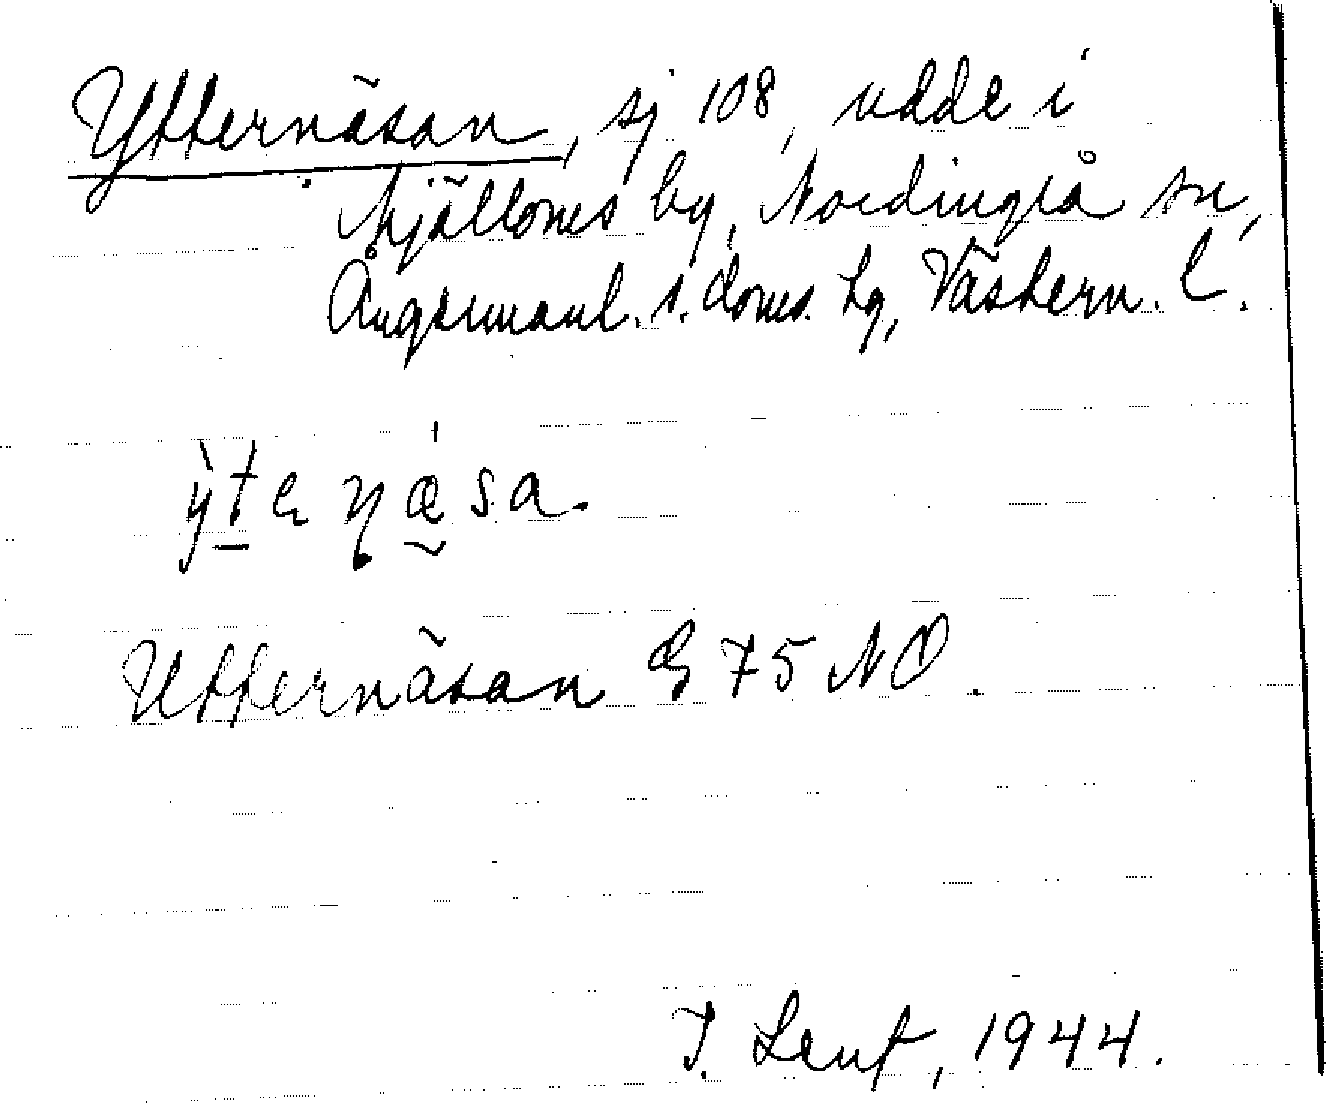 Ytternäsan, sj 108, udde i
Mjälloms by, Nordingrå sn,
Ångermanl. s. doms. hg, Västern. l.
ỳtenǽsa.
Ytternäsan G 75 NO.
J. Lenf, 1944.